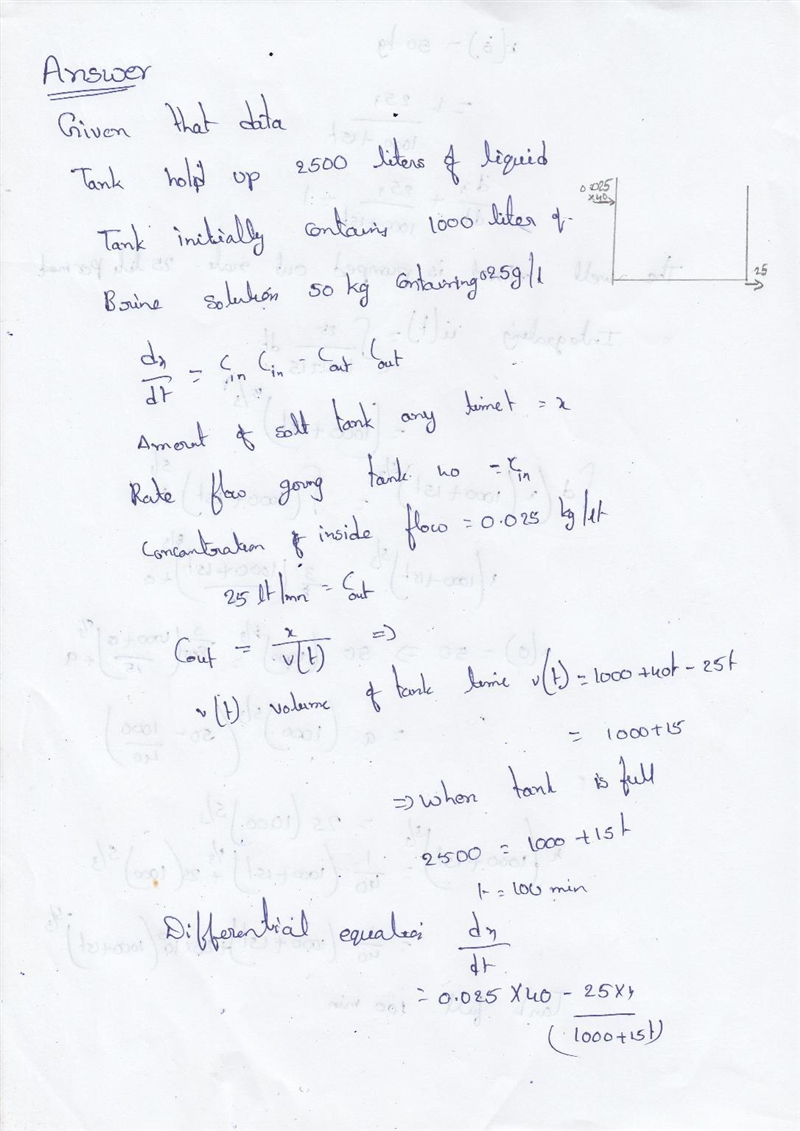 Answer
Given that data
Tank hold up 2500 liters of liquid
Tank initially contains 1000 liter of
Brine solution 50 kg containing 025g/l
0.025
x40
25
dx/dt = r_in C_in - r_out C_out
Amount of salt tank any time t = x
Rate flow going tank 40 = r_in
Concantration of inside flow = 0.025 kg/lt
25 lt/mn = r_out
Cout = x/v(t) =>
v(t) volume of tank time v(t) = 1000+40t-25t
= 1000+15
=> When tank is full
2500 = 1000+15t
t = 100 min
Differential equation dx/dt
= 0.025 X 40 - 25Xx/(1000+15t)